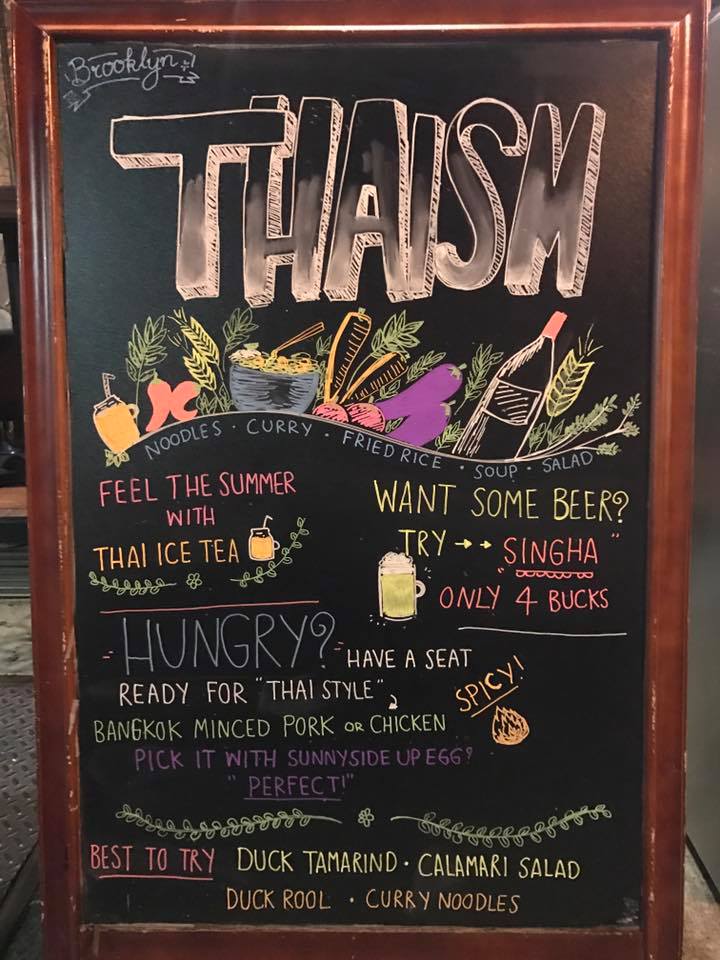 Brooklyn
THAISM
NOODLES · CURRY · FRIED RICE · SOUP · SALAD
FEEL THE SUMMER
WITH
THAI ICE TEA
WANT SOME BEER?
TRY →→ "SINGHA"
ONLY 4 BUCKS
HUNGRY? HAVE A SEAT
READY FOR "THAI STYLE",
SPICY!
BANGKOK MINCED PORK OR CHICKEN
PICK IT WITH SUNNYSIDE UP EGG?
"PERFECT!"
BEST TO TRY DUCK TAMARIND · CALAMARI SALAD
DUCK ROOL · CURRY NOODLES